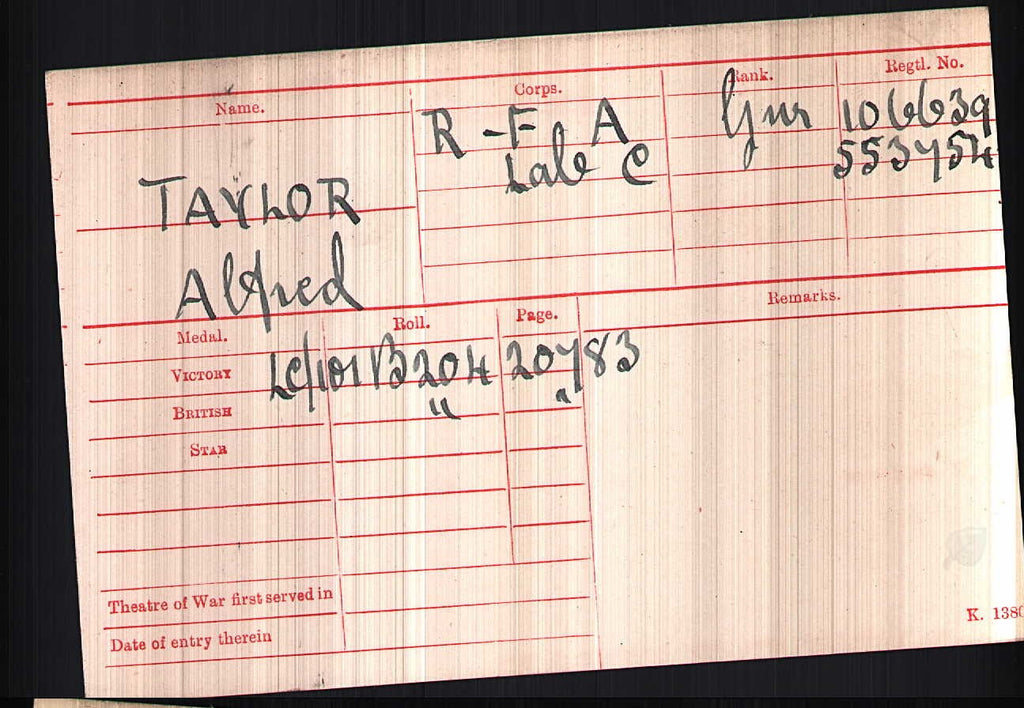 Name. Corps. Rank. Regtl. No.
R - F A Gnr 106639
Lab C 553754
TAYLOR
Alfred
Medal. Roll. Page. Remarks.
VICTORY LC/101B204 20783
BRITISH " "
STAR
Theatre of War first served in
Date of entry therein
K. 1380